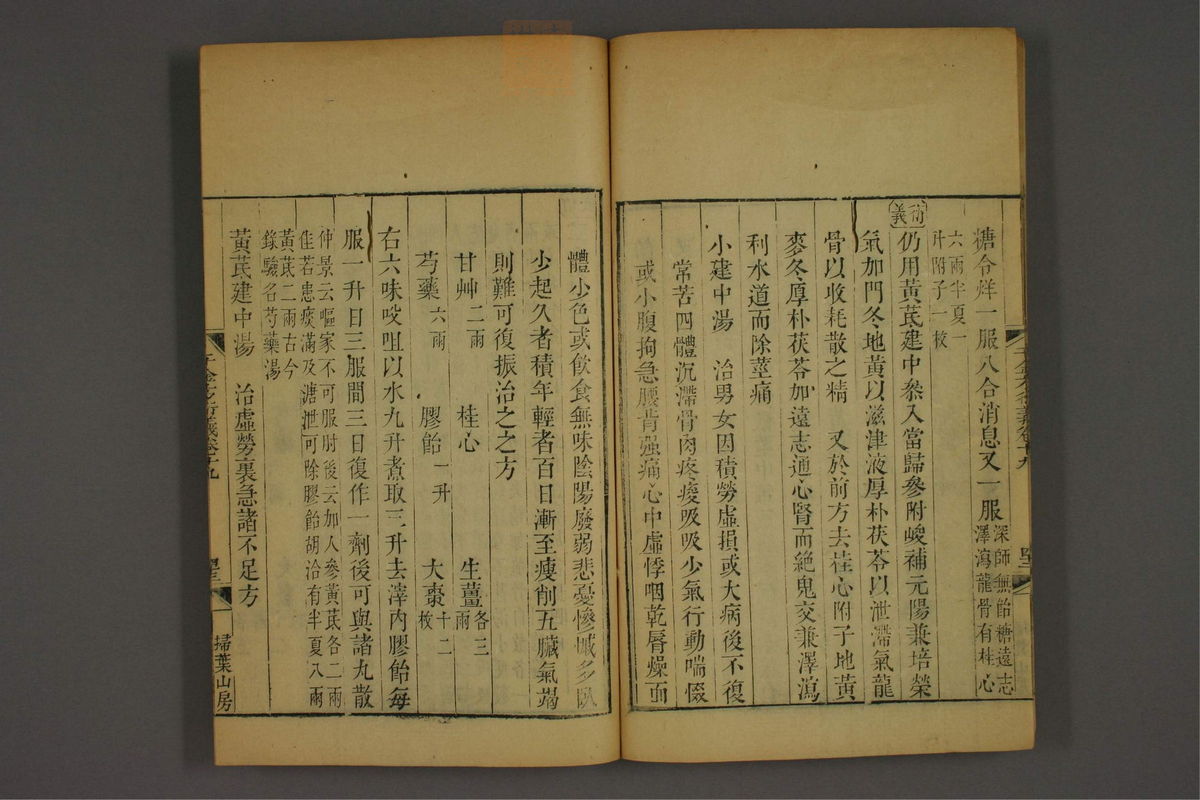 糖令烊一服八合消息又一服深師無飴糖遠志澤瀉龍骨有桂心
六兩半夏一升附子一枚
衍義
仍用黃芪建中叅入當歸參附峻補元陽兼培榮
氣加門冬地黃以滋津液厚朴茯苓以泄滯氣龍
骨以收耗散之精 又於前方去桂心附子地黃
麥冬厚朴茯苓加遠志通心腎而絕鬼交兼澤瀉
利水道而除莖痛
小建中湯 治男女因積勞虛損或大病後不復
常苦四體沉滯骨肉疼痠吸吸少氣行動喘惙
或小腹拘急腰背强痛心中虛悸咽乾唇燥面
體少色或飲食無味陰陽廢弱悲憂慘慽多臥
少起久者積年輕者百日漸至瘦削五臟氣竭
則難可復振治之之方
甘艸二兩 桂心 生薑各三兩
芍藥六兩 膠飴一升 大棗十二枚
右六味㕮咀以水九升煮取三升去滓內膠飴每
服一升日三服間三日復作一劑後可與諸丸散
仲景云嘔家不可服肘後云加人參黃芪各二兩
佳若患痰滿及溏泄可除膠飴胡洽有半夏八兩
黃芪二兩古今
錄驗名芍藥湯
黃芪建中湯 治虛勞裏急諸不足方
千金方衍義卷十九
掃葉山房